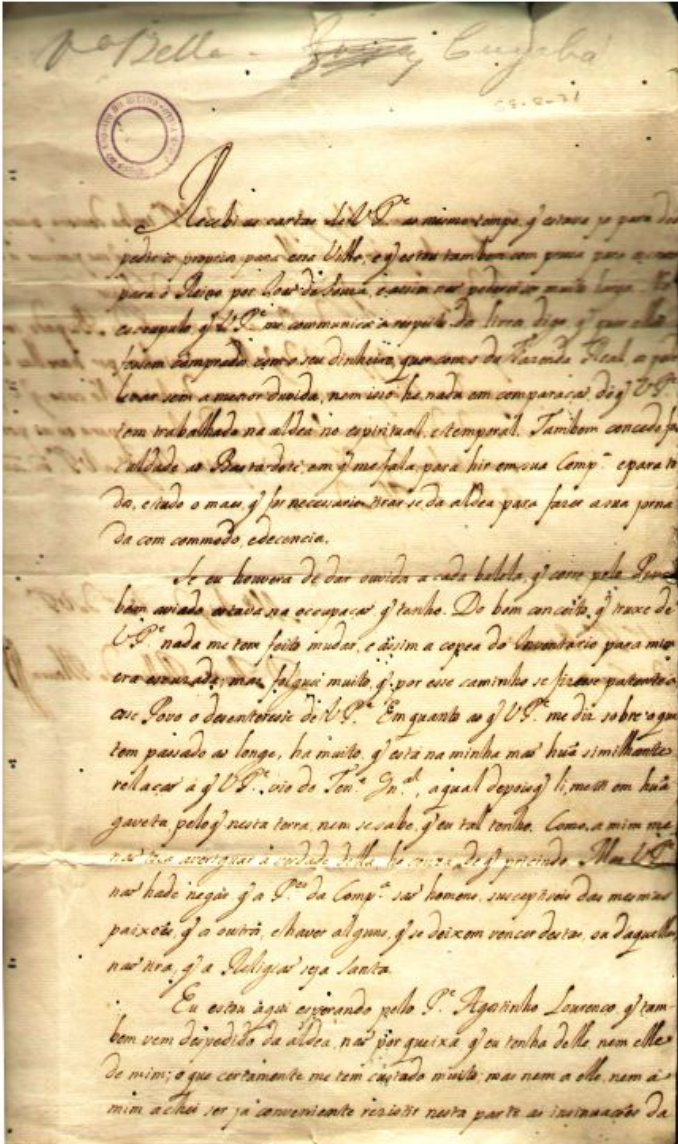 Va Bella - Cuyabá
Recebi as cartas de V Pe ao mesmo tempo, q' estava ja para des
pedir o proprio para essa Villa, e q' estou tambem com pressa para
para o Reino por e assim não poderei ser muito largo.
escrupulo, q' V Pe me communica a respeito dos livros digo, q' quer elles
fossem comprados com o seu dinheiro, quer com o da Fazenda Real os pode
levar sem a menor duvida, nem isso he nada em comparação do q' V Pe
tem trabalhado na aldea no espiritual, e temporal. Tambem concedo fa
culdade ao Bastardote, em q' me fala, para hir em sua Compa e para to
do, e tudo o mais, q' for necessario tirar se da aldea para fazer a sua jorna
da com commodo, e decencia.
Se eu houvera de dar ouvidos a cada balela, q' corre pelo Povo
bem aviado estava na occupação q' tenho. Do bom conceito, q' truxe de
V Pe nada me tem feito mudar, e assim a copea do Inventario para mim
era escuzada; mas folguei muito, q' por esse caminho se fizesse patente a
esse Povo o desenteresse de V Pe Em quanto ao q' V Pe me diz sobre o que
tem passado ao longe, ha muito, q' está na minha mão huã similhante
rellação á q' V Pe vio do Tene Gnal, a qual depois q' li, metti em huã
gaveta, pelo q' nesta terra, nem se sabe, q' eu tal tenho. Como a mim me
não toca averiguar a verdade della, he couza de q' pricindo. Mas V Pe
não hade negar q' a Pes da Compa são homens, susceptiveis das mesmas
paixões, q' a outra, e haver alguns, q' se deixem vencer destas, ou daquellas
não tira, q' a Religião seja Santa.
Eu estou aqui esperando pelo Pe Agostinho Lourenço, q' tam
bem vem despedido da aldea, não por queixa q' eu tenha delle, nem elle
de mim; o que certamente me tem custado muito; mas nem a elle, nem a
mim achei ser já conveniente rezistir nesta parte as insinuações da